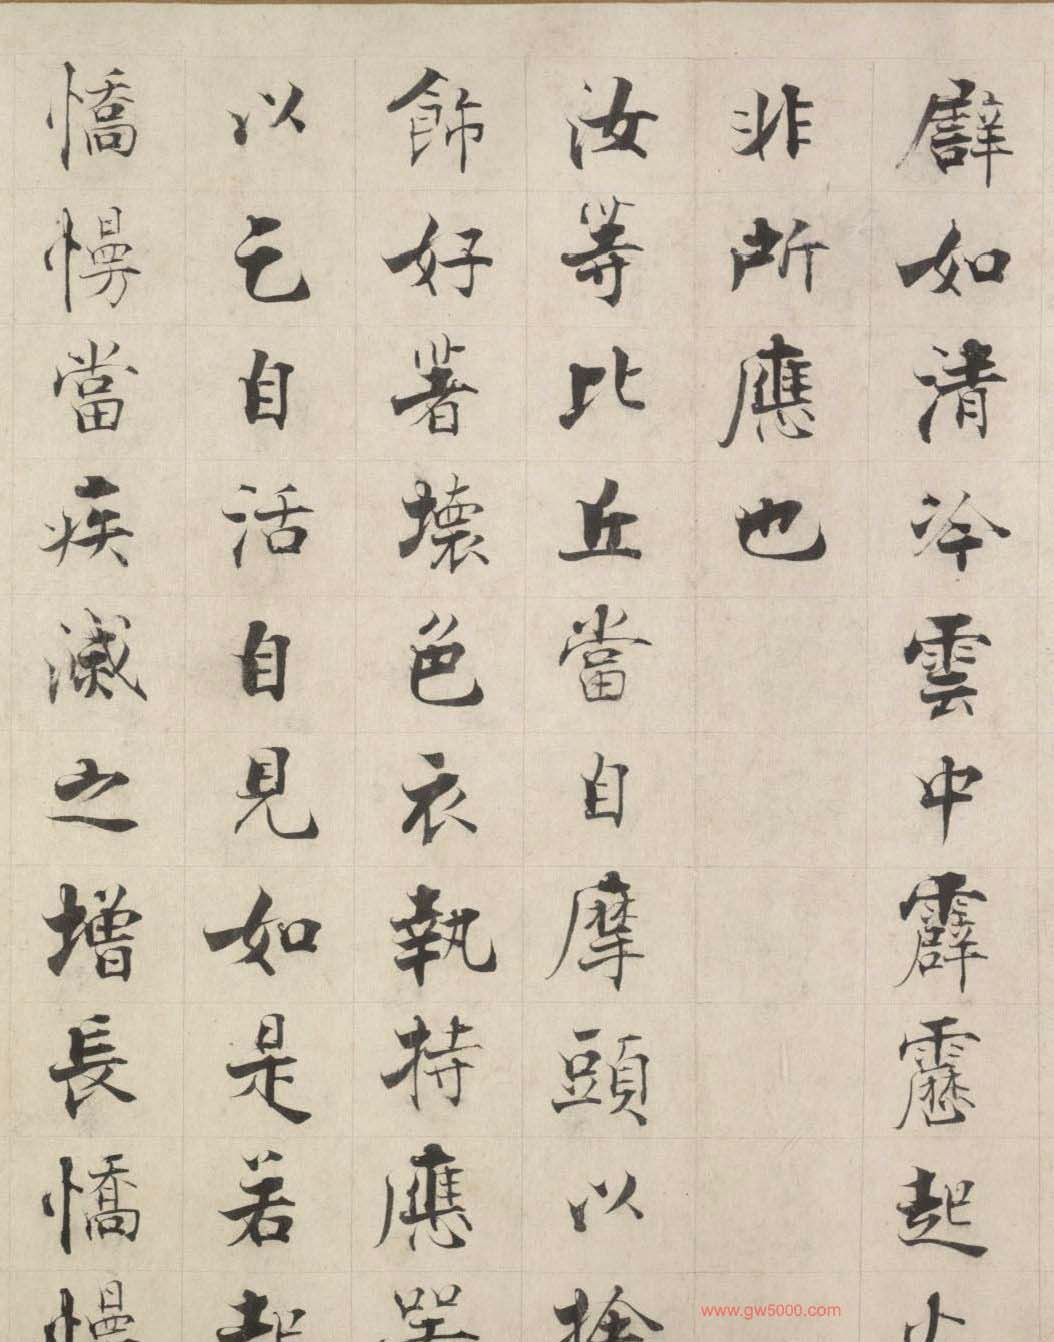 譬如清冷雲中霹靂起火
非所應也
汝等比丘當自摩頭以捨
飾好著壞色衣執持應器
以乞自活自見如是若起
憍慢當疾滅之增長憍慢
www.gw5000.com